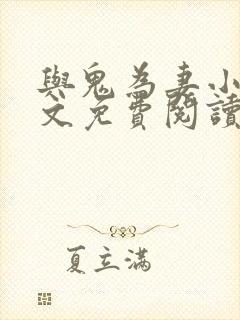 與鬼為妻小
文免費閱讀
夏立滿